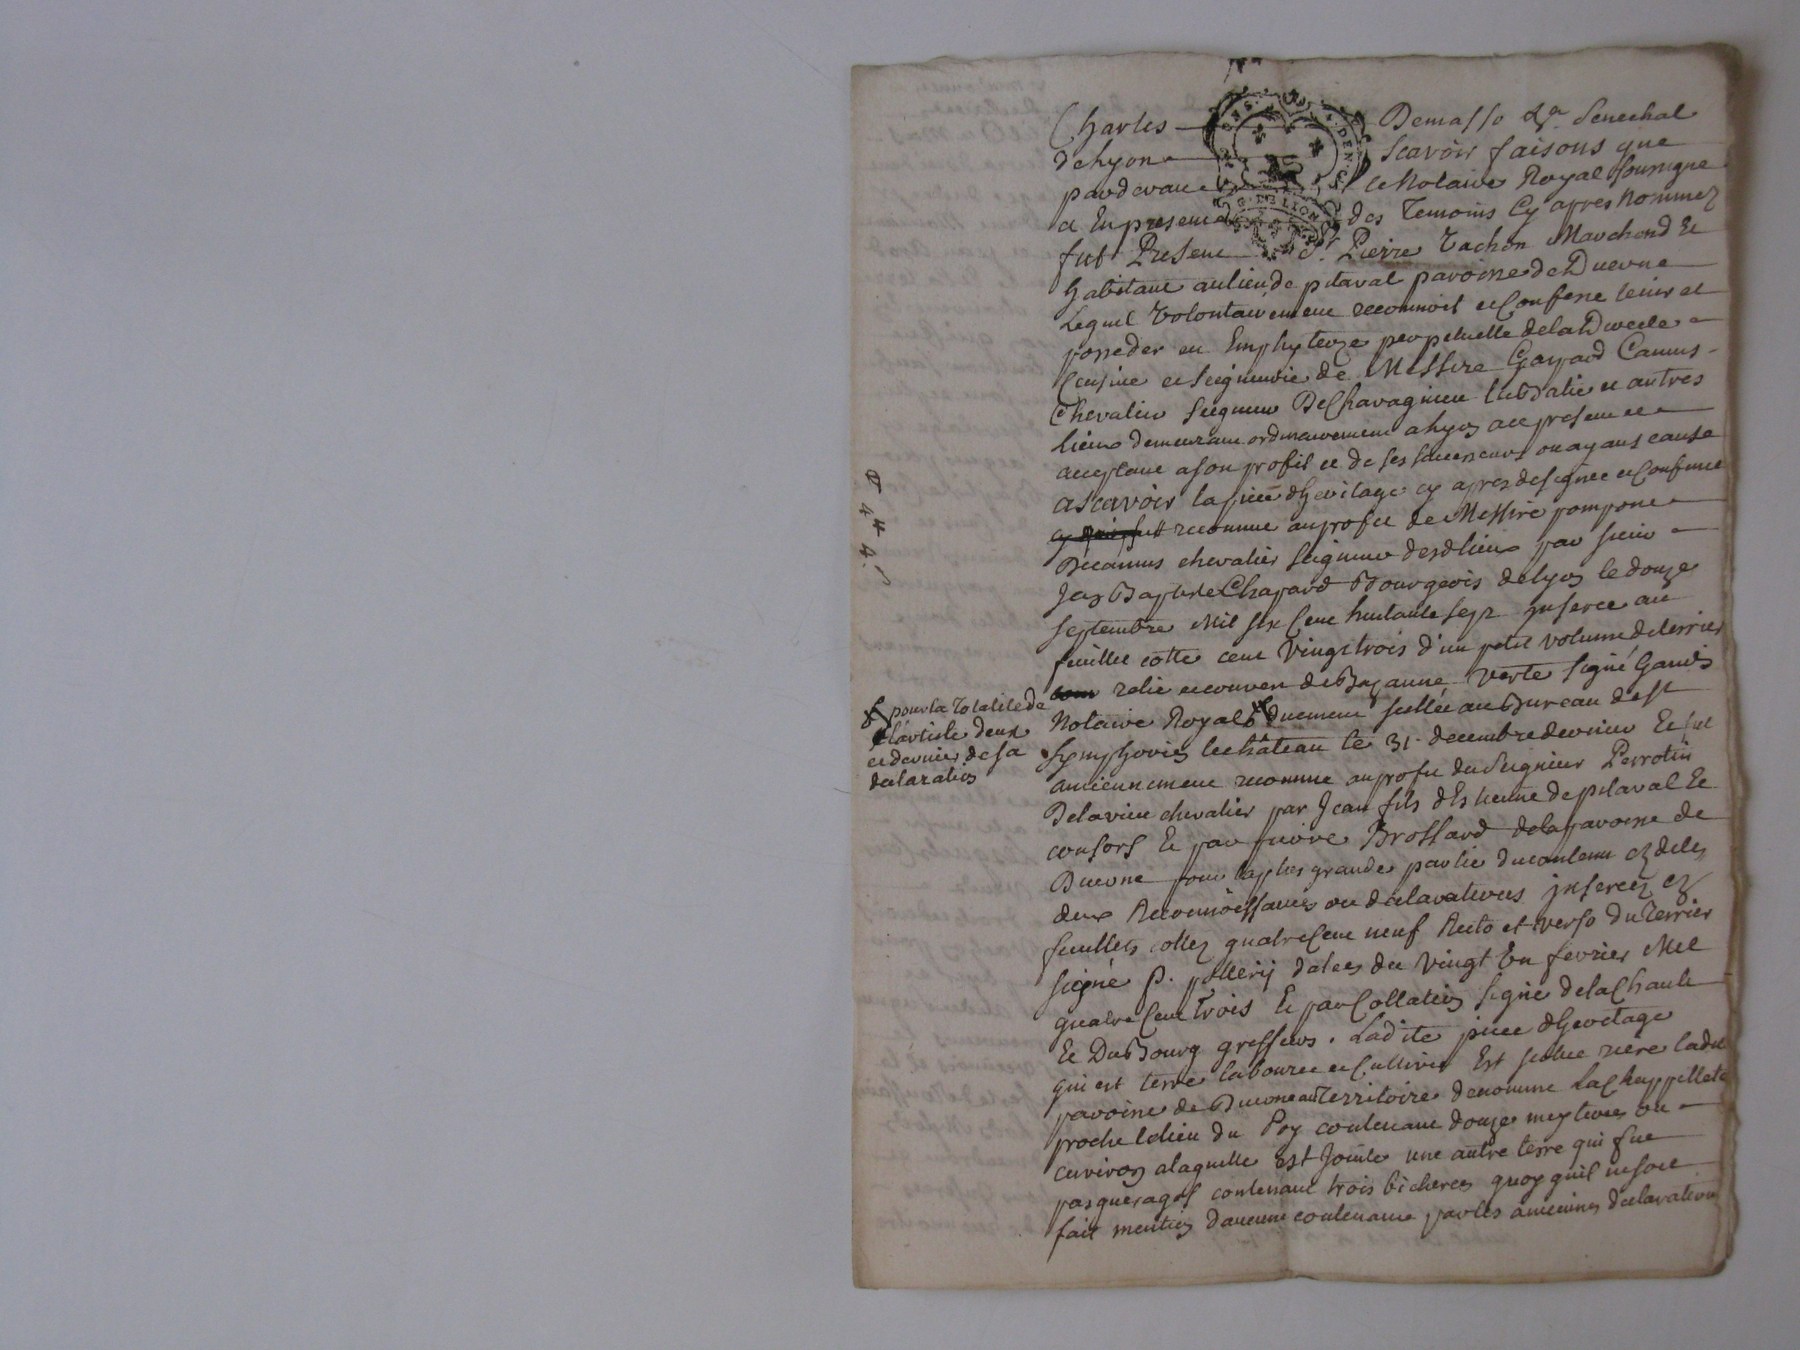 Charles Demasso &a Senechal
de Lyon Scavoir faisons que
pardevant le Notaire Royal soussigné
et En presence des Temoins Cy apres Nommez
fut Present Sr. Pierre Vachon Marchand Et
habitant au lieu de pitaval paroisse de Duerne
Lequel Volontairement reconnoit et Confesse tenir et
posseder en Emphyteoze perpetuelle de la Directe
Censive et Seigneurie de Messire Gaspard Camus
Chevalier Seigneur De Chavagnieu et autres
Lieux demeurant ordinairement a Lyon acc present et
acceptant a son profit et de ses successeurs ou ayans cause
ascavoir la piece d'heritage cy apres designée et Confinée
reconnue au profit de Messire pompone
Decamus chevalier Seigneur desd lieux par sieur
Jean Baptiste Chapard Bourgeois de Lyon le douze
Septembre Mil six Cent huitante Sept inseree au
feuillet cotte cent Vingt trois d'un petit volume de terrier
relié et couvert de Bazanne Verte Signé
Notaire Royal duement scellée au Bureau de St
Symphorien le château le 31 decembre dernier Et fut
anciennement reconnue au profit du Seigneur Perrotin
Delavieu chevalier par Jean fils d'Estienne de pitaval Et
consors Et par pierre Brossard de la paroisse de
Duerne pour la plus grande partie du contenu ez deles
deux Reconnoissances ou declarations inserées ez
feuillets cottez quatre Cent neuf Recto et verso du Terrier
signé P. datées du Vingt Un fevrier Mil
quatre Cent trois Et par Collation signé de la Chault
Et DuBourg greffiers. Ladite piece d'heritage
qui est terre labourée et Cultivée Est scituée riere ladit
paroisse de Duerne au Territoire denommé La Chappellete
proche le lieu du Poy contenant douze meyterees ou
environ a laquelle est Jointe une autre terre qui fut
pasqueragés contenant trois bicherees quoy quil ne soit
fait mention d'aucune contenance par les anciennes declarations
pour la Totalité de
l'article deux
et dernier de sa
declaration